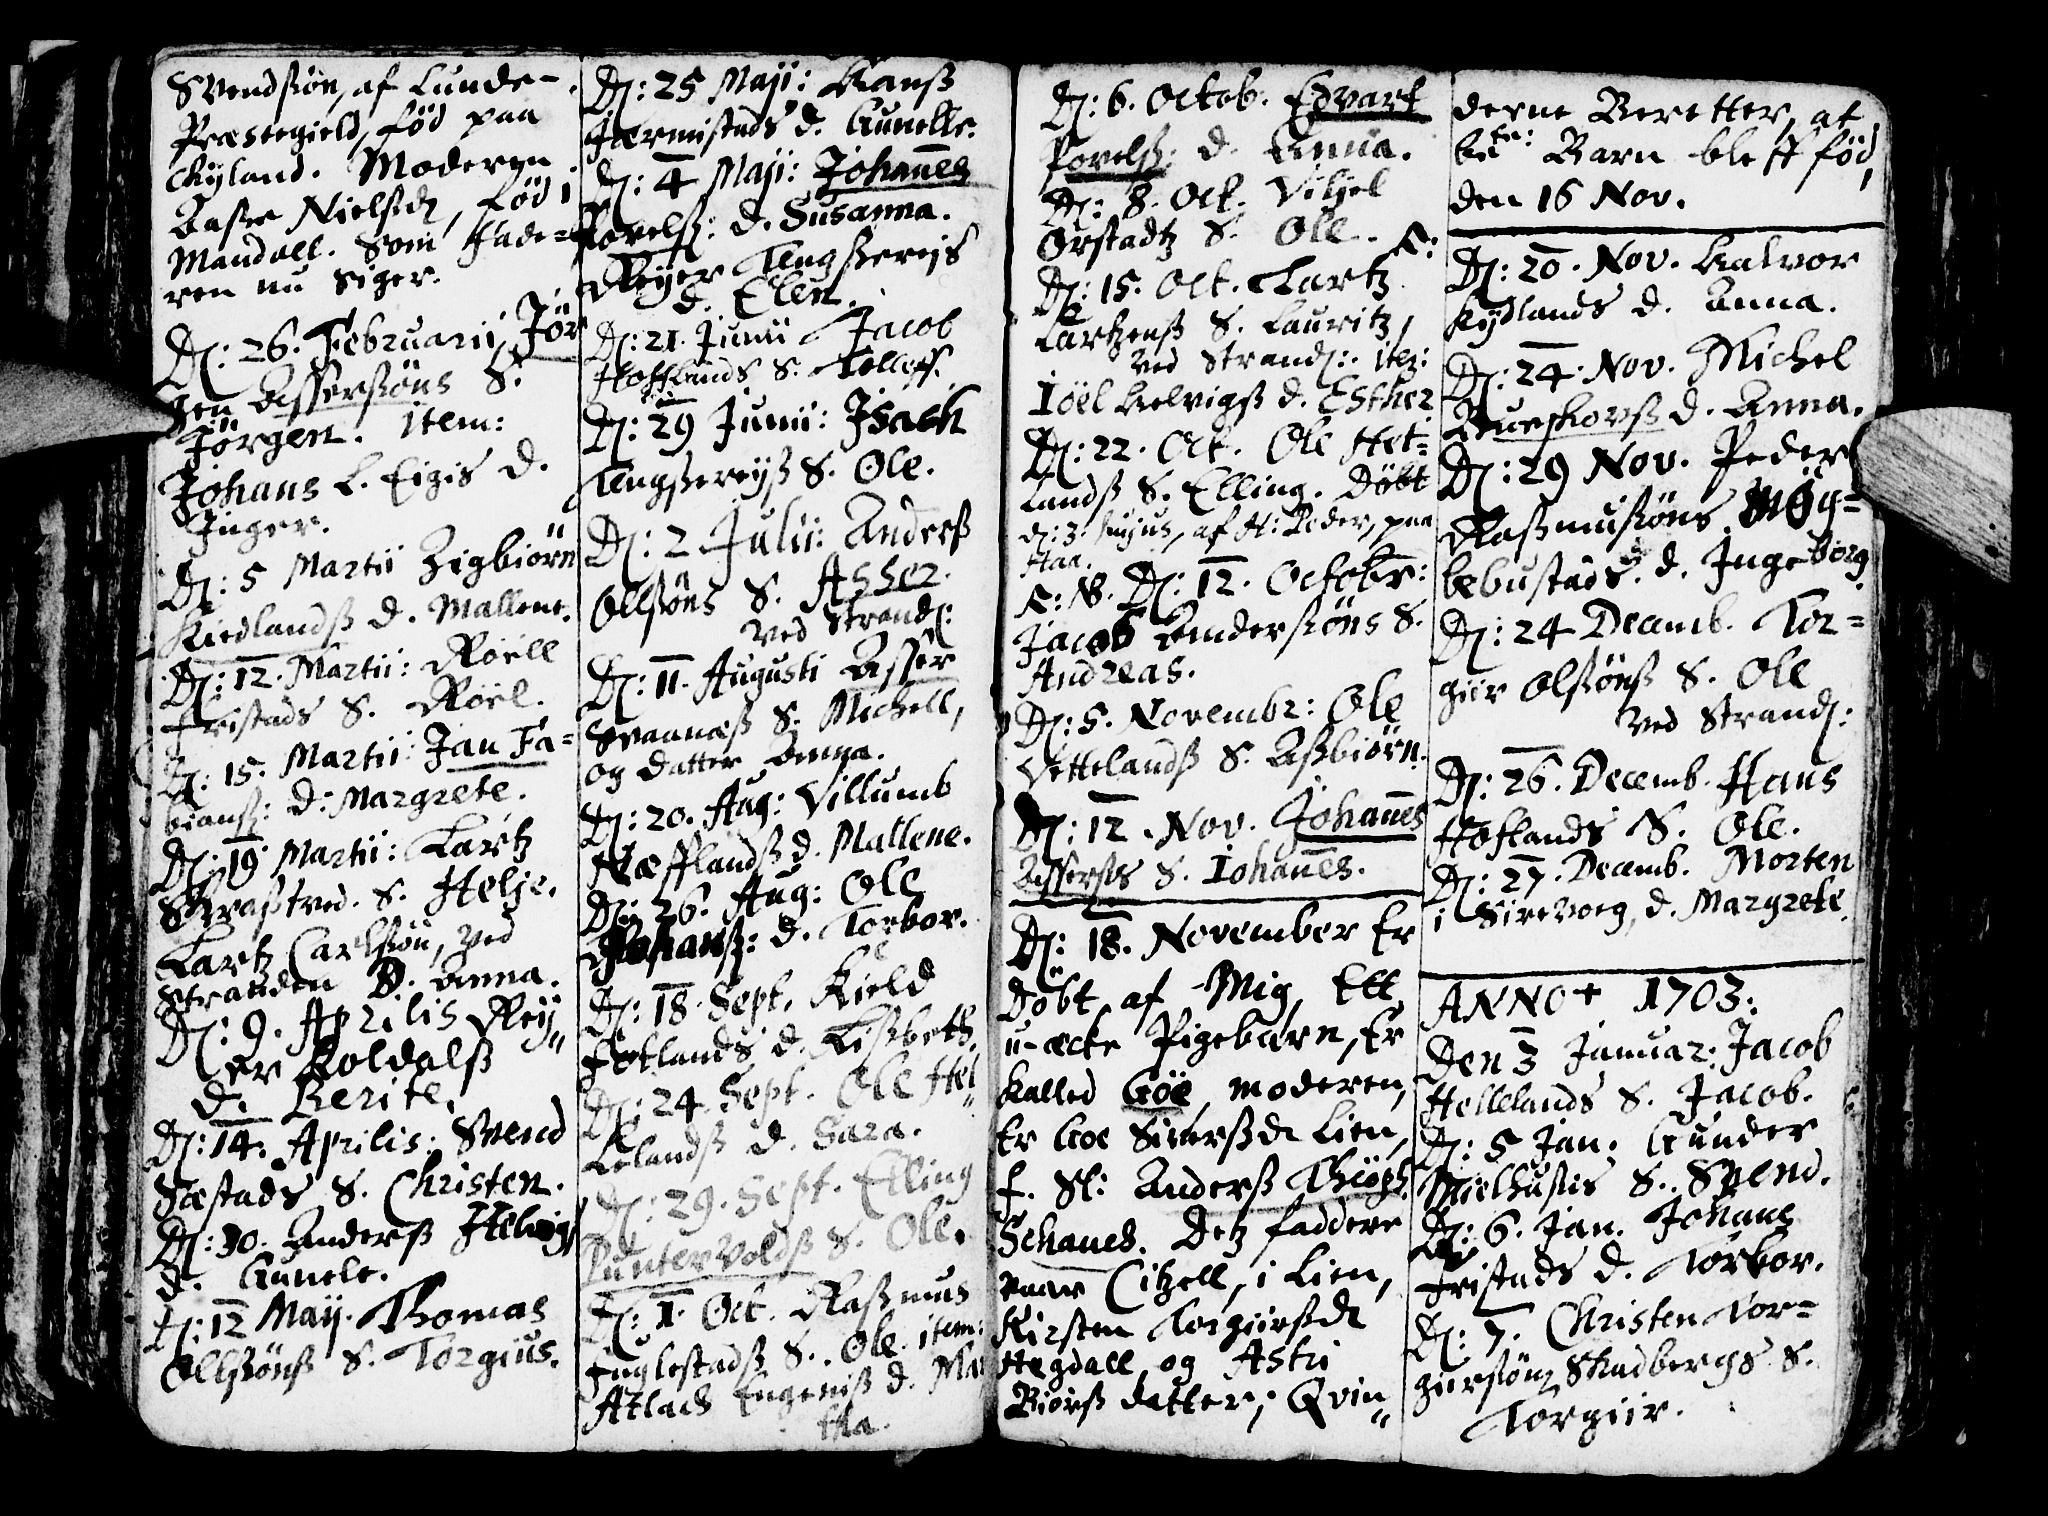 Svendsøn, af Lunde-
Præstegield, fød paa
Kyland. Moderen
Nielsd, fød i
Mandall. Som Fade-
ren nu Siger.
D: 26. Februarii Jør
gen Assersøns S.
Jørgen. item:
Johans L. Eigis D.
Inger.
D: 5 Martii Zigbiørn
Kiedlandß d. Mallene.
D: 12. Martii: Roell
Fristads S. Roël.
D: 15. Martii: Jan Fa-
bianß: d: Margrete.
D: 19 Martii: Lartz
S. Helje.
Lartz Carlsøn, ved
Stranden D. Anna.
D: 9. Aprilis Reij-
er Koldalß
d. Berite.
D: 14. Aprilis: Svend
Sæstads S. Christen.
D: 30. Anderß Helvig
d. Gunele.
D: 12 Maij. Thomas
Ollßønß S. Torgius.
D: 25 Maji: Hanß
d. Gunelle.
D: 4 Maji: Johanes
Povelß: d. Susanna.
Reijer Tengßereiß
d. Elen.
D: 21. Junii Jacob
Hofflands S: Tolleff.
D: 29 Junii: Isach
Tengßereyß S. Ole.
D: 2 Julii: Anderß
Ollsøns S. Asser.
Ved Strand:
D: 11. Augusti Asser
Svaanæß S. Michell,
og datter Anna.
D: 20. Aug: Villumb
Næfflandß d. Mallene.
D: 26. Aug: Ole
Johanß: d. Torbor.
D: 18. Sept. Kield
Hetlands d. Lißbeth.
D: 24 Sept. Ole Hel
Lelandß d. Sara.
D: 29. Sept. Elling
Puntervoldß S. Ole.
D: 1. Oct. Raßmus
Fuglestadß S. Ole. item:
Atlach Eugeniß d. Ma
tha.
D: 6. Octob. Edvart
Povelß: d. Anna.
D: 8. Oct. Viljel
Orstadtz S. Ole.
D: 15. Oct. Lartz
Lartzenß S. Lauritz,
Ved Strand: ite:
Ioël Helvigß d. Esther
D: 22. Oct. Ole Het-
landß S. Elling. Døbt
d: 3. hujus, af H: Peder, paa
Haa.
F: N. D: 12. Octobr:
Jacob Andersøns S.
Andreas.
D: 5. Novembr: Ole
Vettelandß S. Aßbiørn.
D: 12. Nov. Johanes
Assers S. Iohanes.
D: 18. November Er
Døbt af Mig Ett
u-æcte Pigebarn, Er
kalled Goe, moderen,
Er Goe Siversd Lien,
f. Sl: Anderß Thiøgß.
Schaues. Detz faddere
vaar Citzell, i Lien,
Kirsten Torgiersd
Hegdall og Astri
Biørß datter, Qvin-
derne Beretter, at
bete: Barn bleff fød,
den 16 Nov.
D: 20. Nov. Halvor
Kydlands d. Anna.
D: 24. Nov. Michel
d. Anna.
D: 29 Nov. Peder
Raßmusøns Møg-
lebustads. d. Ingeborg
D: 24 Decemb. Tor-
gier Olsønß S. Ole
Ved Strand:
D: 26. Decemb. Hans
Hoflands S. Ole.
D: 27. Decemb. Morten
i Sirevoeg, d. Margrete.
ANNO 1703.
Den 3 Januar: Jacob
Hellelands S. Jacob.
D: 5 Jan: Gunder
Mielhusis S. Svend.
D: 6. Jan. Johans
Fristads d. Torbor.
D: 7. Christen Tor-
giersøn Skadbergs S.
Torgiir.